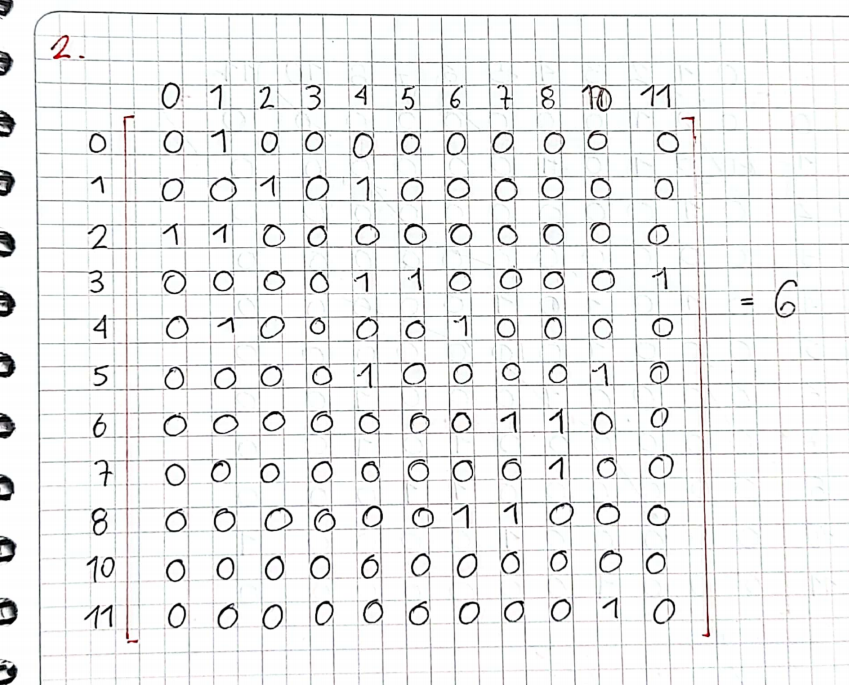 2.
0 1 2 3 4 5 6 7 8 10 11
0 0 1 0 0 0 0 0 0 0 0 0
1 0 0 1 0 1 0 0 0 0 0 0
2 1 1 0 0 0 0 0 0 0 0 0
3 0 0 0 0 1 1 0 0 0 0 1
= 6
4 0 1 0 0 0 0 1 0 0 0 0
5 0 0 0 0 1 0 0 0 0 1 0
6 0 0 0 0 0 0 0 1 1 0 0
7 0 0 0 0 0 0 0 0 1 0 0
8 0 0 0 0 0 0 1 1 0 0 0
10 0 0 0 0 0 0 0 0 0 0 0
11 0 0 0 0 0 0 0 0 0 1 0